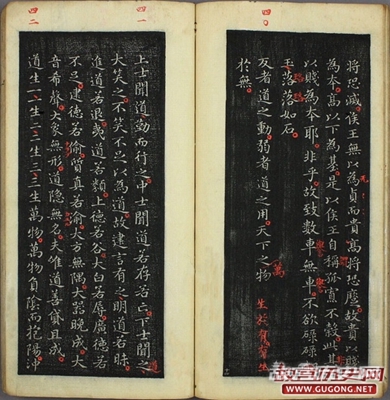 四〇
將恐滅侯王無以為貞而貴高將恐蹷故貴以賤
為本高以下為基是以侯王自稱孤寡不穀此其
以賤為本耶非乎故致數車無車不欲碌碌如
玉落落如石
反者道之動弱者道之用天下之物
萬
生於有有生
於無
四一
上士聞道勤而行之中士聞道若存若亡下士聞之
道
大笑之不笑不足以為道故建言有之明道若昧
進道若退夷道若類上德若谷大白若辱廣德若
不足建德若偷質真若渝大方無隅大器晚成大
音希聲大象無形道隱無名夫惟道善貸且成
四二
道生一一生二二生三三生萬物萬物負陰而抱陽沖
故宮歷史網
WWW.GUGONG.NET